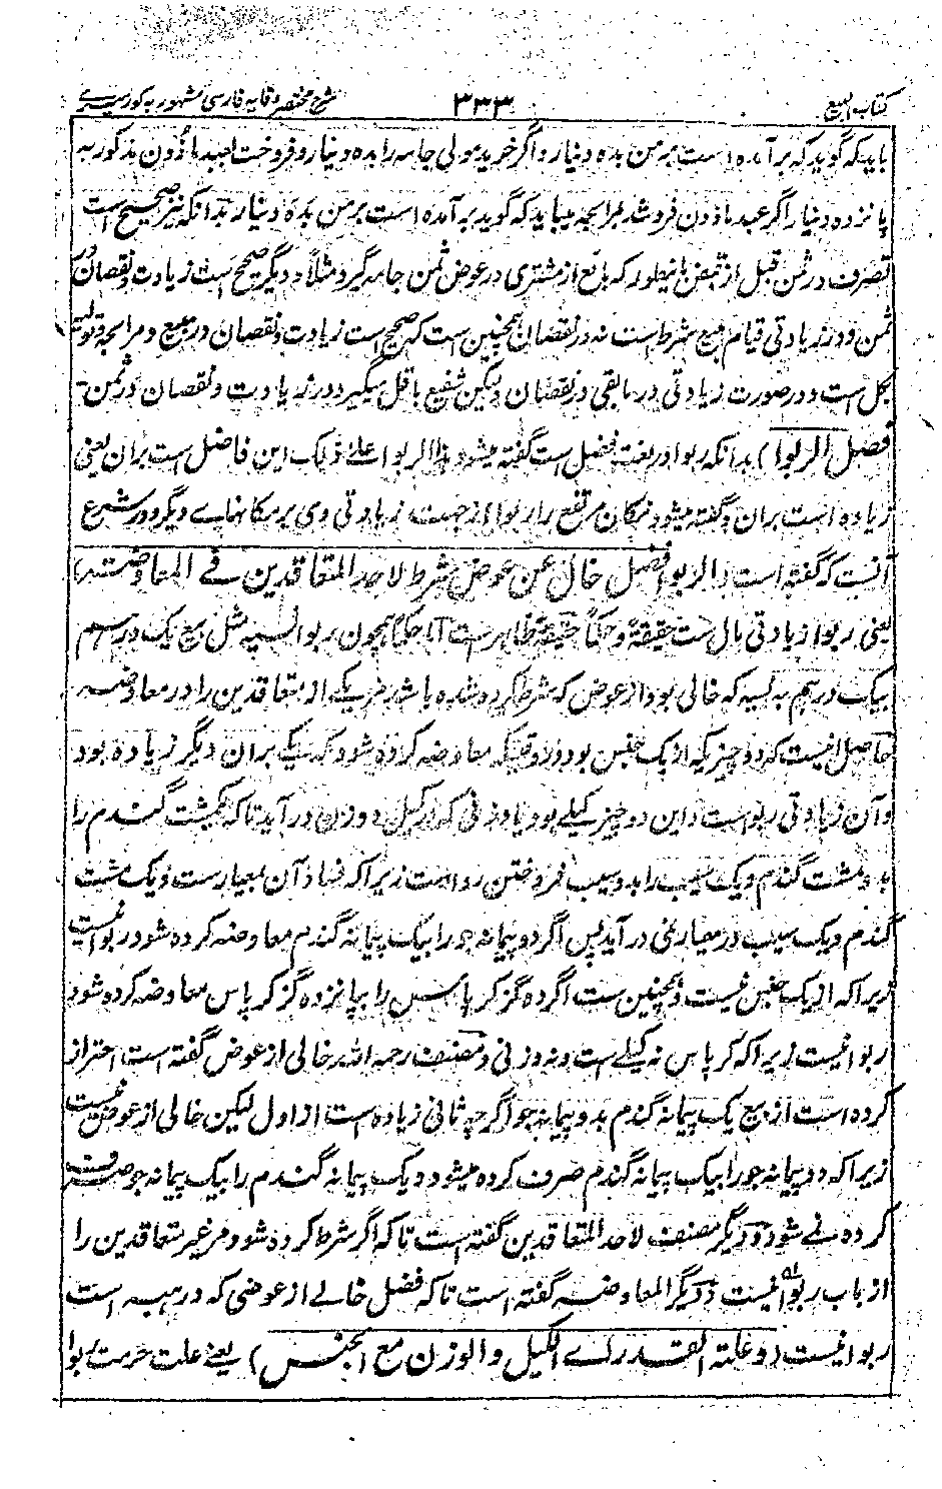 کتاب البیع ۳۳۳ شرح مختصر وقایه فارسی مشهور به کور سیری
باید که گوید که برآمده است بر من بده دینار و اگر خرید مولی جامه را بده دینار و فروخت بعبد ماذون مذکور به
پانزده دینار اگر عبد ماذون فروشد بمرابحه میباید که گوید برآمده است بر من بده دینار بدانکه نیز صحیح است
تصرف در ثمن قبل از قبض بانیطور که بائع از مشتری در عوض ثمن جامه گیرد مثلا و دیگر صحیح است زیادت و نقصان در
ثمن و در زیادتی قیام مبیع شرط است نه در نقصان همچنین است که صحیح است زیادت و نقصان در مبیع و مرابحه و تولیه
بکل است و در صورت زیادتی در مابقی در نقصان ولیکن شفیع باقل میگیرد در زیادت و نقصان در ثمن
فصل الربوا) بدانکه ربوا در لغت فضل است گفته میشود هذا الربوا علی ذلک این فاضل است بران یعنی
زیاده است بران و گفته میشود مکان مرتفع را ربوا از جهت زیادتی وی بر مکانهاے دیگر و در شرع
آنست که گفته است (الربوا فضل خال عن عوض شرط لاحد المتعاقدین فے المعاوضة)
یعنی ربوا زیادتی مال ست حقیقة و حکما حقیقة ظاهر ست اما حکما همچون ربوا النسیه مثل بیع یک درهم
بیک درهم به نسیه که خالی بود از عوض که شرط کرده شده باشد مر یکے از متعاقدین را در معاوضه
حاصل انیست که دو چیزیکه از یک جنس بود وقتیکه معاوضه کرده شود که یکے بران دیگر زیاده بود
و آن زیادتی ربوا ست و این دو چیز کیلے بود یا وزنی که در کیل و وزن درآید تا که یکمشت گندم را
بدو مشت گندم و یک سیب را بدو سیب فروختن رواست زیرا که فساد آن بمعیار ست و یک مشت
گندم و یک سیب در معیار نمی درآید پس اگر دو پیمانه جو را بیک پیمانه گندم معاوضه کرده شود ربوا نیست
زیرا که از یک جنس نیست و همچنین ست اگر ده گز کرپاس را بپانزده گز کرپاس معاوضه کرده شود
ربوا نیست زیرا که کرپاس نه کیلے است و نه وزنی و مصنف رحمه الله خالی از عوض گفته است احتراز
کرده است از بیع یک پیمانه گندم بدو پیمانه جو اگر چه ثانی زیاده است از اول لیکن خالی از عوض نیست
زیرا که دو پیمانه جو را بیک پیمانه گندم صرف کرده میشود و یک پیمانه گندم را بیک پیمانه جو صرف
کرده نمے شود و دیگر مصنف لاحد المتعاقدین گفته است تا که اگر شرط کرده شود مر غیر متعاقدین را
از باب ربوا نیست و دیگر المعاوضه گفته است تا که فضل خالے از عوضی که در هبه است
ربوا نیست (و علته القدر اے الکیل و الوزن مع الجنس) یعنے علت حرمت ربوا